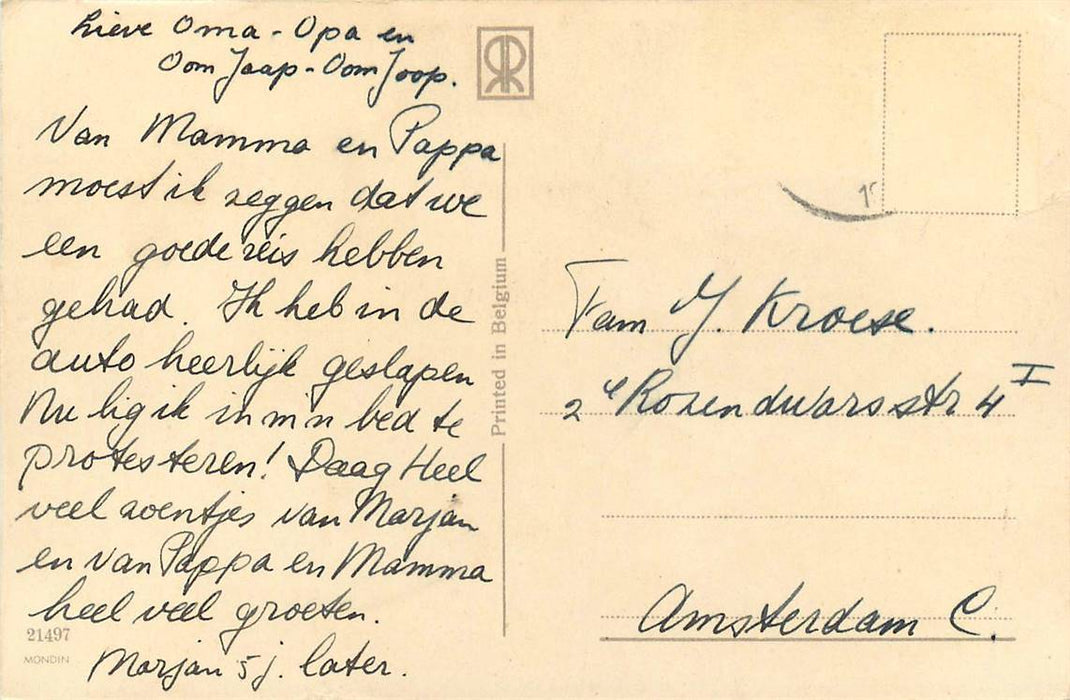 Lieve Oma - Opa en
Oom Jaap - Oom Joop.
Van Mamma en Pappa
moest ik zeggen dat we
een goede reis hebben
gehad. Ik heb in de
auto heerlijk geslapen
Nu lig ik in m'n bed te
protesteren! Daag Heel
veel zoentjes van Marjan
en van Pappa en Mamma
heel veel groeten.
Marjan 5 j. later.
21497
MONDIN
Printed in Belgium
Fam Y. Kroese.
2e Rozendwarsstr 4 I
Amsterdam C.